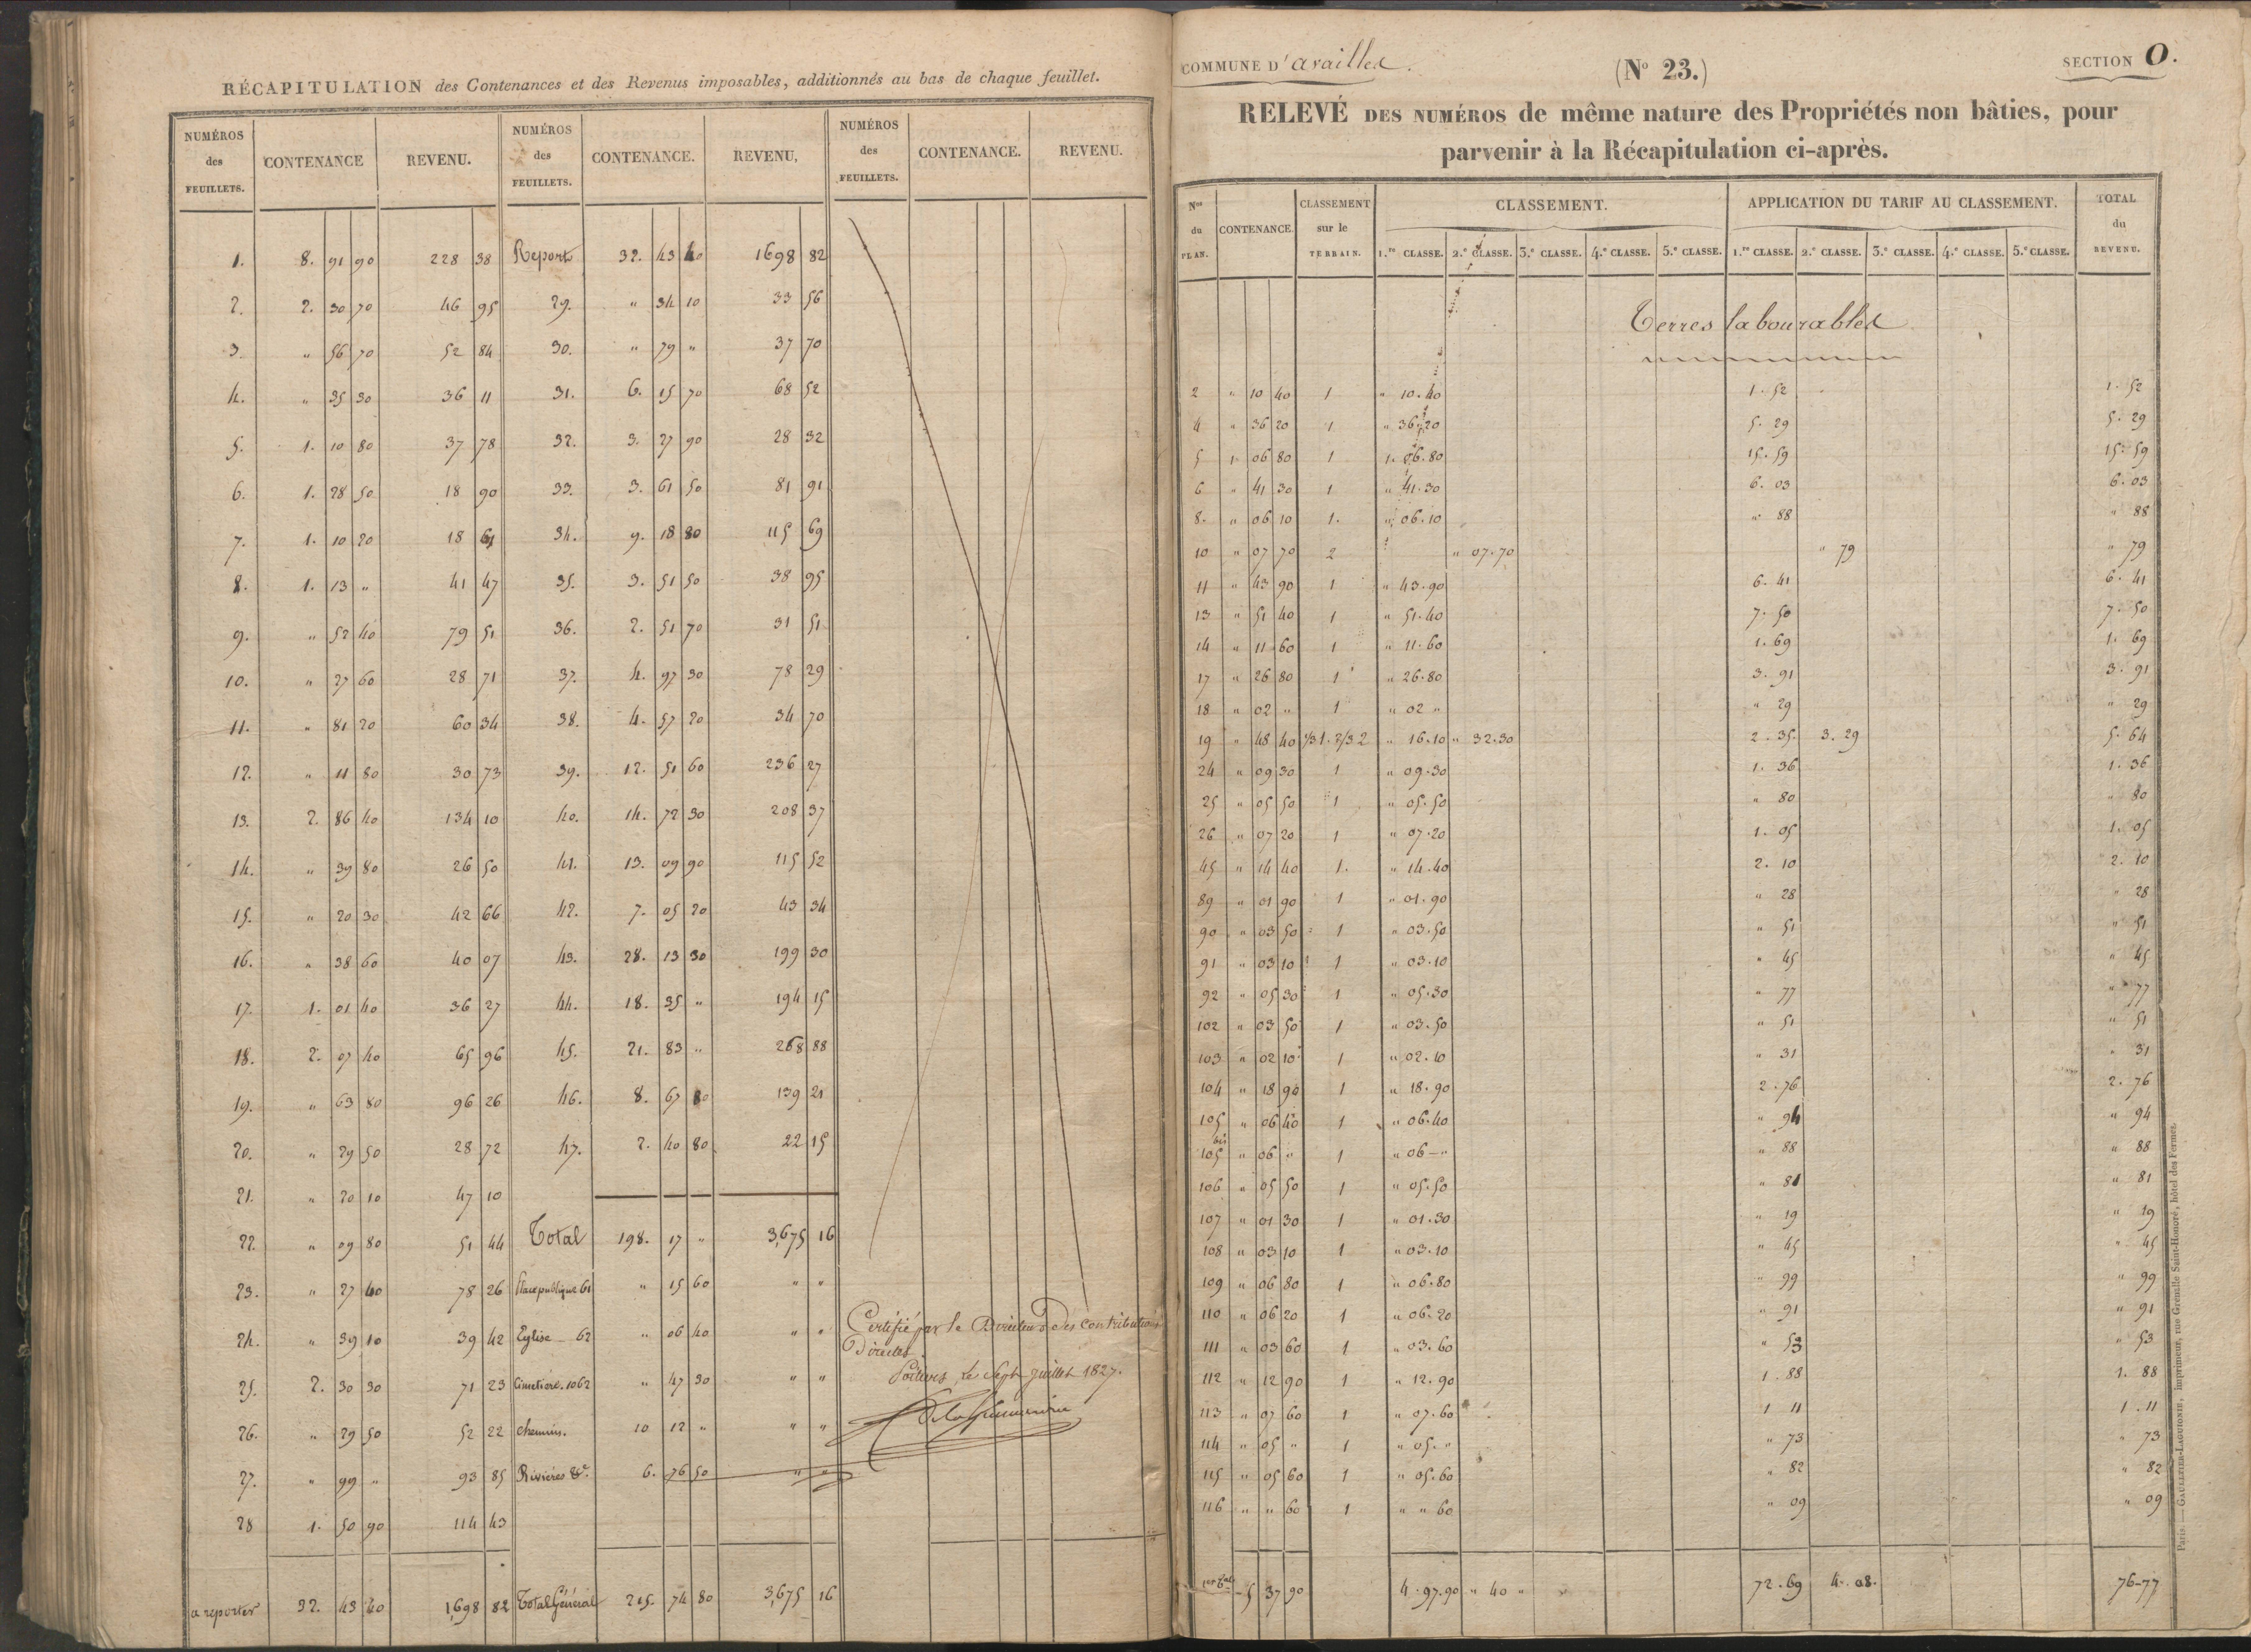 RÉCAPITULATION des Contenances et des Revenus imposables, additionnés au bas de chaque feuillet.
NUMÉROS des FEUILLETS. CONTENANCE REVENU. NUMÉROS des FEUILLETS. CONTENANCE. REVENU, NUMÉROS des FEUILLETS. CONTENANCE. REVENU.
1. 8. 91 90 228 38 Report 32. 43 40 1698 82
2. 2. 30 70 46 95 29. " 34 10 33 56
3. " 56 70 52 84 30. " 79 " 37 70
4. " 35 30 36 11 31. 6. 15 70 68 52
5. 1. 10 80 37 78 32. 3. 27 90 28 32
6. 1. 28 50 18 90 33. 3. 61 50 81 91
7. 1. 10 20 18 61 34. 9. 18 80 115 69
8. 1. 13 " 41 47 35. 3. 51 50 38 95
9. " 52 40 79 51 36. 2. 51 70 31 51
10. " 27 60 28 71 37. 4. 97 30 78 29
11. " 81 20 60 34 38. 4. 57 20 34 70
12. " 11 80 30 73 39. 12. 51 60 236 27
13. 2. 86 40 134 10 40. 14. 72 30 208 37
14. " 39 80 26 50 41. 13. 09 90 115 52
15. " 20 30 42 66 42. 7. 05 20 43 34
16. " 38 60 40 07 43. 28. 13 30 199 30
17. 1. 01 40 36 27 44. 18. 35 " 194 15
18. 2. 07 40 65 96 45. 21. 83 " 268 88
19. " 63 80 96 26 46. 8. 67 80 139 21
20. " 29 50 28 72 47. 2. 40 80 22 15
21. " 20 10 47 10
22. " 09 80 51 44 Total 198. 17 " 3,675 16
23. " 27 40 78 26 Place publique 61 " 15 60 " "
24. " 39 10 39 42 Eglise — 62 " 06 40 " "
25. 2. 30 30 71 23 Cimetiere. 1062 " 47 30 " "
26. " 29 50 52 22 chemins. 10 12 " " "
27. " 99 " 93 85 Rivieres &c. 6. 76 50 " "
28 1. 50 90 114 43
a reporter 32. 43 40 1,698 82 Total Général 215. 74 80 3,675 16
Certifié par le Directeur des contributions
Directes.
Poitiers, le Sept juillet 1827.
COMMUNE D'availles.
(No 23.)
SECTION O.
RELEVÉ DES NUMÉROS de même nature des Propriétés non bâties, pour
parvenir à la Récapitulation ci-après.
Nos du PLAN. CONTENANCE. CLASSEMENT sur le TERRAIN. CLASSEMENT. APPLICATION DU TARIF AU CLASSEMENT. TOTAL du REVENU.
1.re CLASSE. 2.e CLASSE. 3.e CLASSE. 4.e CLASSE. 5.e CLASSE. 1.re CLASSE. 2.e CLASSE. 3.e CLASSE. 4.e CLASSE. 5.e CLASSE.
Terres labourables
2 " 10 40 1 " 10.40 1.52 1.52
4 " 36 20 1 " 36.20 5.29 5.29
5 1 06 80 1 1.06.80 15.59 15.59
6 " 41 30 1 " 41.30 6.03 6.03
8. " 06 10 1. " 06.10 " 88 " 88
10 " 07 70 2 " 07.70 " 79 " 79
11 " 43 90 1 " 43.90 6.41 6.41
13 " 51 40 1 " 51.40 7.50 7.50
14 " 11 60 1 " 11.60 1.69 1.69
17 " 26 80 1 " 26.80 3.91 3.91
18 " 02 " 1 " 02 " " 29 " 29
19 " 48 40 1/3 1. 2/3 2 " 16.10 " 32.30 2.35. 3.29 5.64
24 " 09 30 1 " 09.30 1.36 1.36
25 " 05 50 1 " 05.50 " 80 " 80
26 " 07 20 1 " 07.20 1.05 1.05
45 " 14 40 1. " 14.40 2.10 2.10
89 " 01 90 1 " 01.90 " 28 " 28
90 " 03 50 1 " 03.50 " 51 " 51
91 " 03 10 1 " 03.10 " 45 " 45
92 " 05 30 1 " 05.30 " 77 " 77
102 " 03 50 1 " 03.50 " 51 " 51
103 " 02 10 1 " 02.10 " 31 " 31
104 " 18 90 1 " 18.90 2.76 2.76
105 " 06 40 1 " 06.40 " 94 " 94
105 bis " 06 " 1 " 06 — " " 88 " 88
106 " 05 50 1 " 05.50 " 81 " 81
107 " 01 30 1 " 01.30 " 19 " 19
108 " 03 10 1 " 03.10 " 45 " 45
109 " 06 80 1 " 06.80 " 99 " 99
110 " 06 20 1 " 06.20 " 91 " 91
111 " 03 60 1 " 03.60 " 53 " 53
112 " 12 90 1 " 12.90 1.88 1.88
113 " 07 60 1 " 07.60 1 11 1.11
114 " 05 " 1 " 05. " " 73 " 73
115 " 05 60 1 " 05.60 " 82 " 82
116 " " 60 1 " " 60 " 09 " 09
5 37 90 4.97.90 " 40 " 72.69 4.08. 76-77
Paris. — GAULTIER-LAGUIONIE, imprimeur, rue Grenelle Saint-Honoré, hôtel des Fermes.